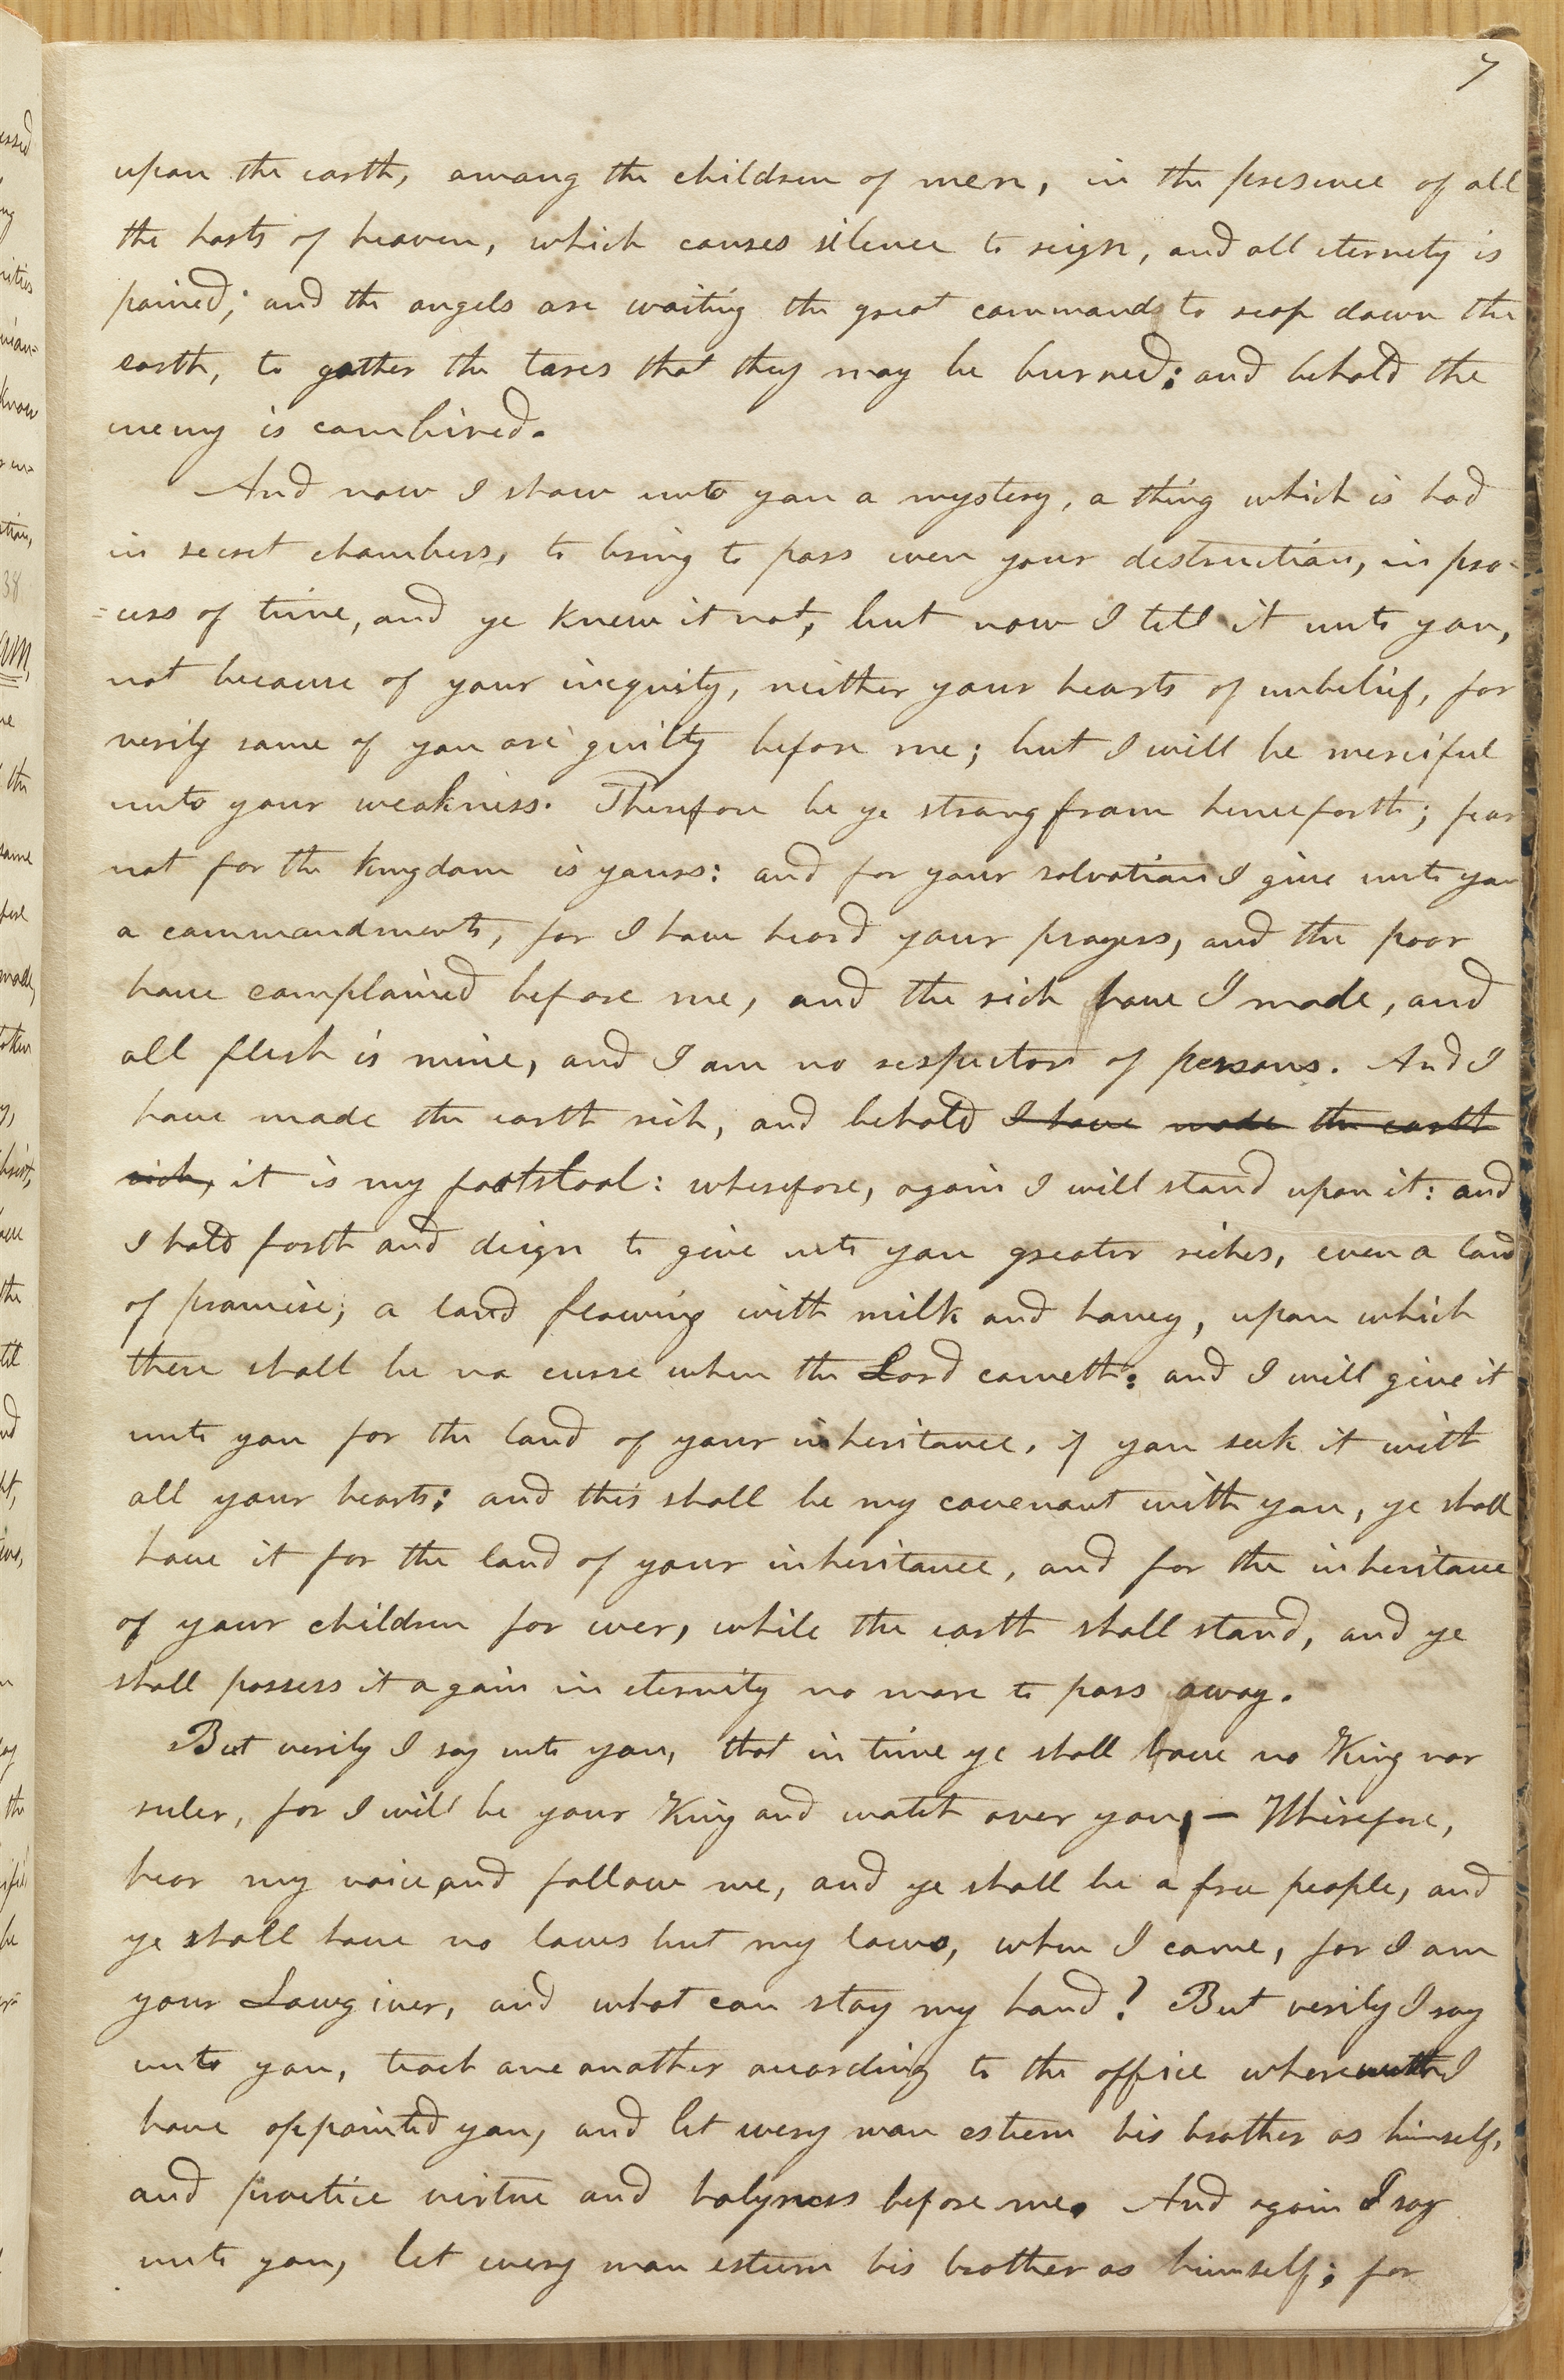 7
upon the earth, among the children of men, in the presence of all
the hosts of heaven, which causes silence to reign, and all eternity is
pained; and the angels are waiting the great commands to reap down the
earth, to gather the tares that they may be burned: and behold the
enemy is combined.
And now I show unto you a mystery, a thing which is had
in secret chambers, to bring to pass even your destruction, in pro-
=cess of time, and ye knew it not, but now I tell it unto you,
not because of your iniquity, neither your hearts of unbelief, for
verily some of you are guilty before me; but I will be merciful
unto your weakness. Therefore be ye strong from henceforth; fear
not for the kingdom is yours: and for your salvation I give unto you
a commandments, for I have heard your prayers, and the poor
have complained before me, and the rich have I made, and
all flesh is mine, and I am no respector of persons. And I
have made the earth rich, and behold I have made the earth
rich, it is my footstool: wherefore, again I will stand upon it: and
I hold forth and deign to give unto you greater riches, even a land
of promise; a land flowing with milk and honey, upon which
there shall be no curse when the Lord cometh: and I will give it
unto you for the land of your inheritance, if you seek it with
all your hearts: and this shall be my covenant with you, ye shall
have it for the land of your inheritance, and for the inheritance
of your children for ever, while the earth shall stand, and ye
shall possess it again in eternity no more to pass away.
But verily I say unto you, that in time ye shall have no King nor
ruler, for I will be your King and watch over you, — Wherefore,
hear my voice and follow me, and ye shall be a free people, and
ye shall have no laws but my laws, when I come, for I am
your Lawgiver, and what can stay my hand? But verily I say
unto you, teach one another according to the office wherewith I
have appointed you, and let every man esteem his brother as himself,
and practice virtue and holyness before me. And again I say
unto you, let every man esteem his brother as himself; for